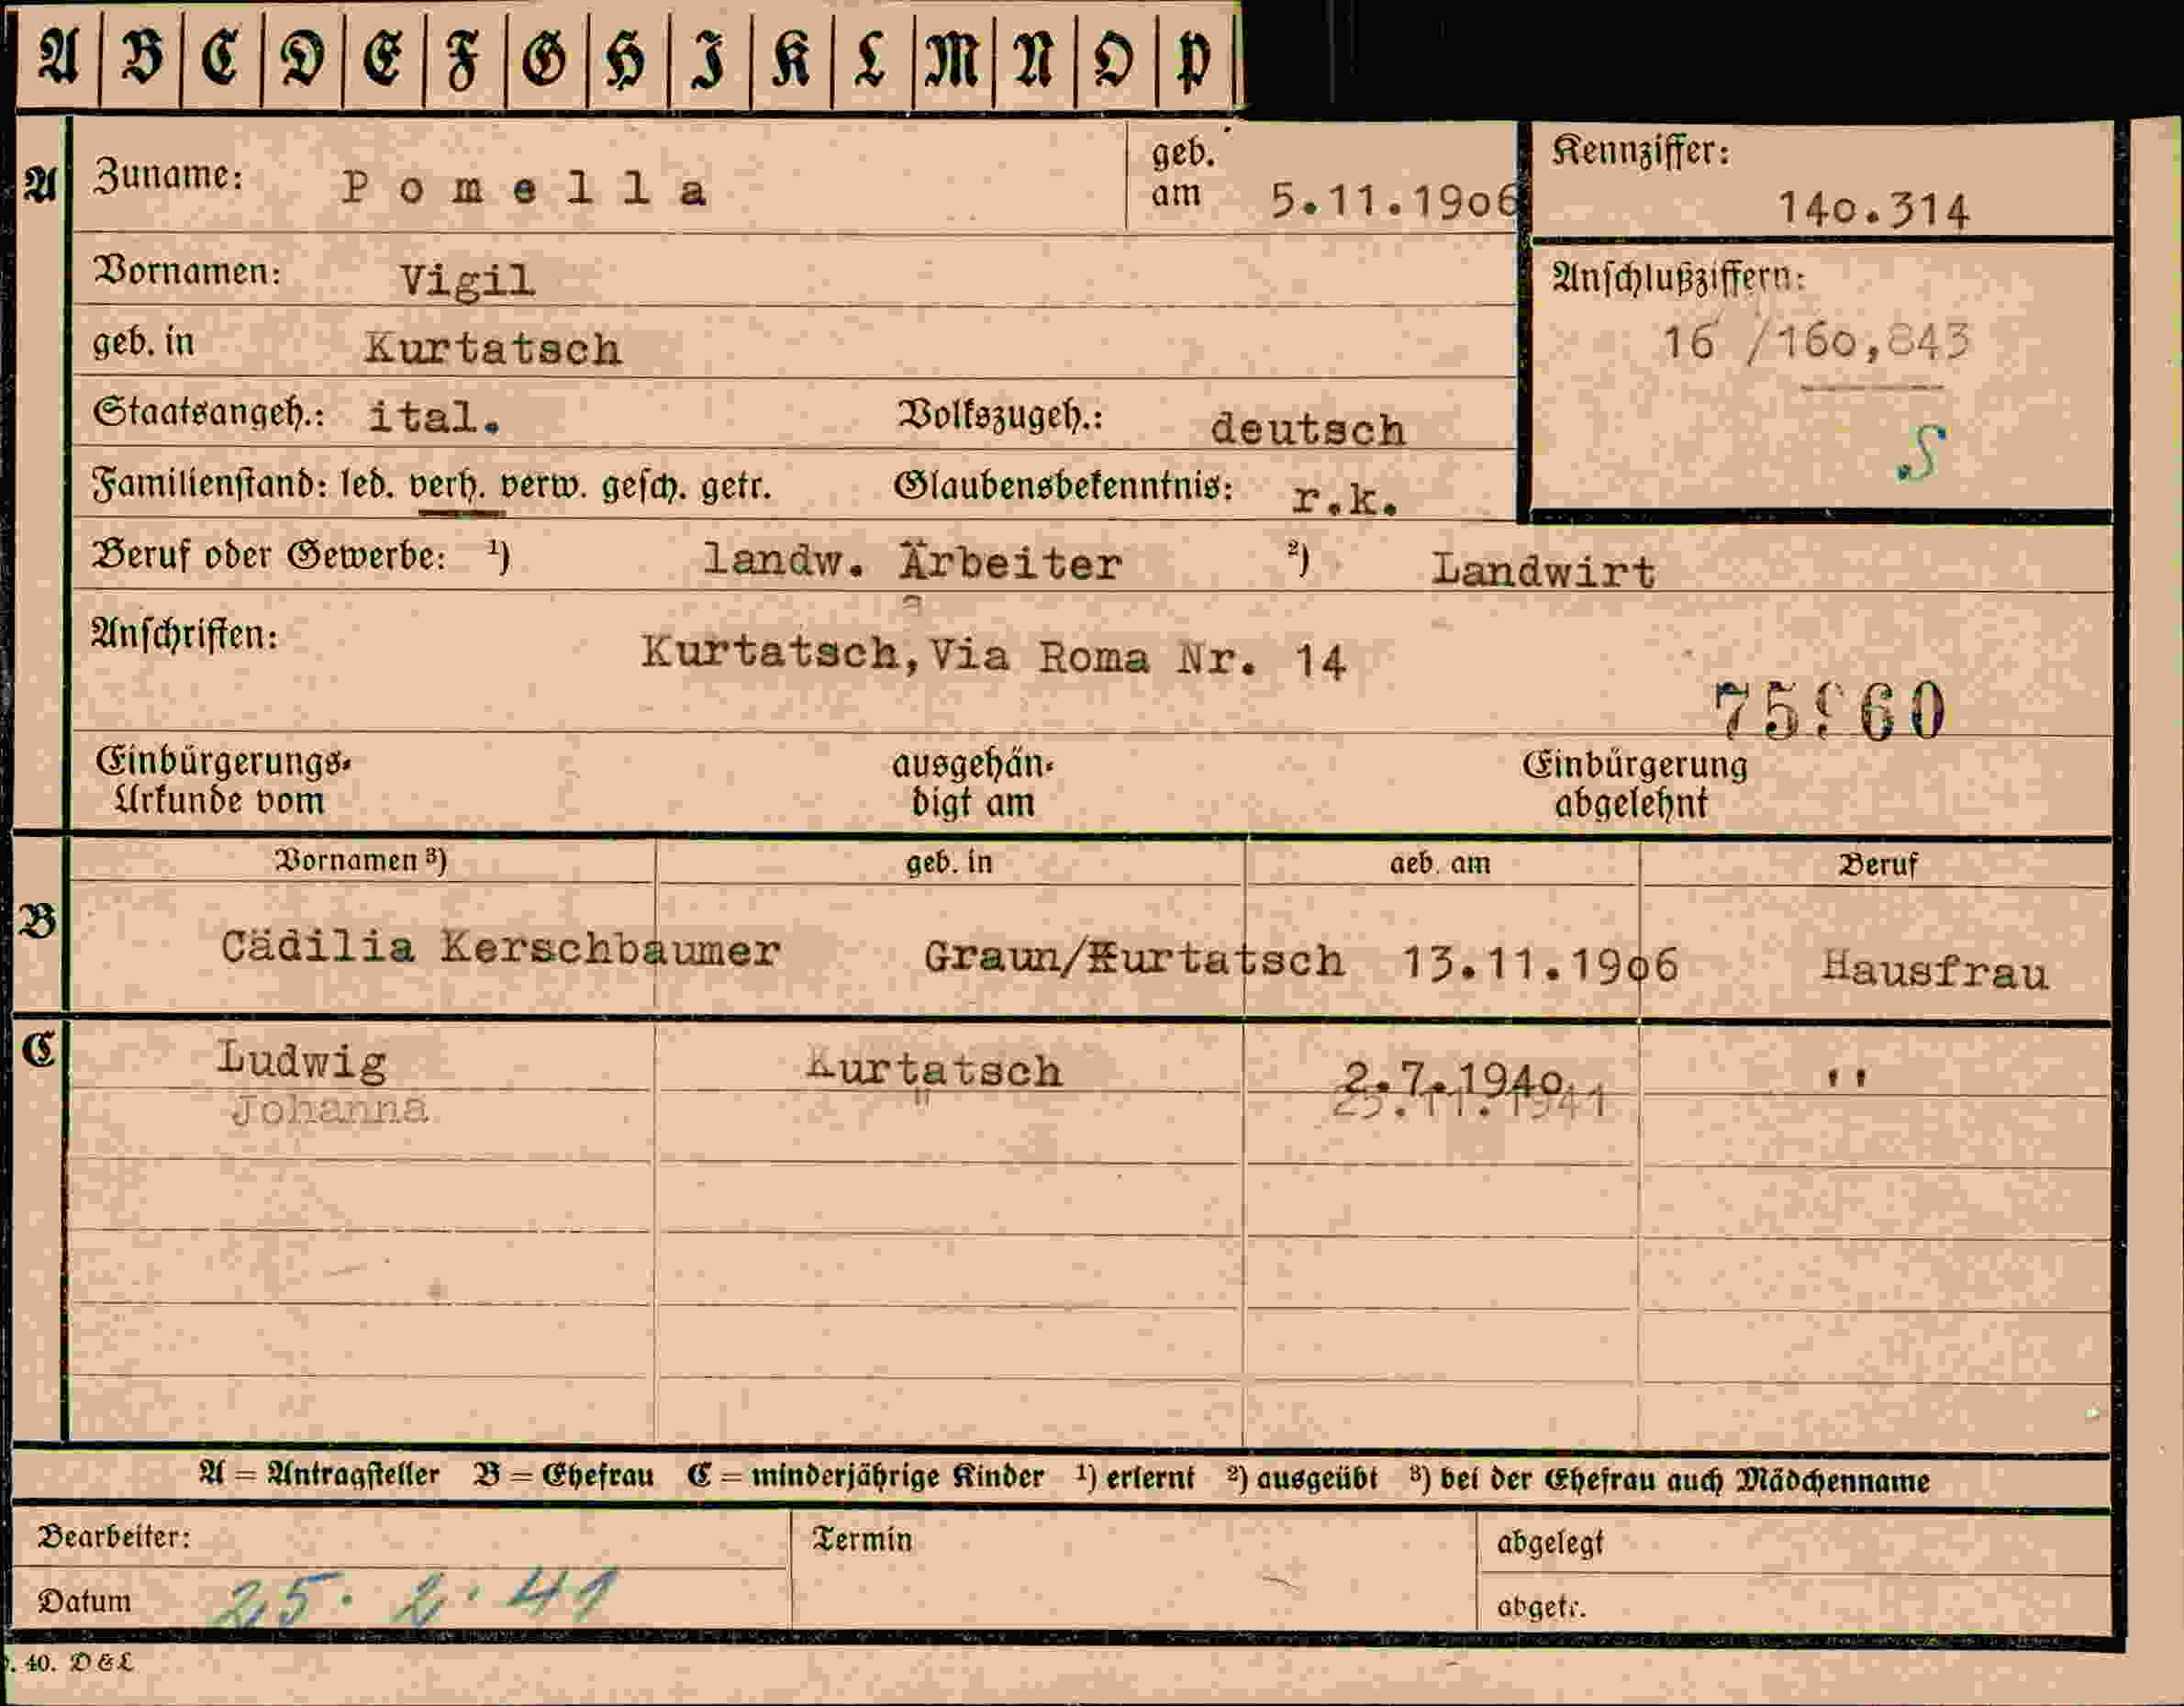 A B C D E F G H I K L M N O P
A Zuname: Pomella geb. am 5.11.1906 Kennziffer: 140.314
Vornamen: Vigil
Anschlußziffern:
geb. in Kurtatsch 16 /160,843
Staatsangeh.: ital. Volkszugeh.: deutsch
S
Familienstand: led. verh. verw. gesch. getr. Glaubensbekenntnis: r.k.
Beruf oder Gewerbe: 1) landw. Arbeiter 2) Landwirt
Anschriften: Kurtatsch, Via Roma Nr. 14
Einbürgerungs-Urkunde vom ausgehändigt am Einbürgerung abgelehnt
Vornamen 3) geb. in geb. am Beruf
B Cädilia Kerschbaumer Graun/Kurtatsch 13.11.1906 Hausfrau
C Ludwig Kurtatsch 2.7.1940 "
Johanna " 11.1941
A = Antragsteller B = Ehefrau C = minderjährige Kinder 1) erlernt 2) ausgeübt 3) bei der Ehefrau auch Mädchenname
Bearbeiter: Termin abgelegt
Datum 25.2.41 abgetr.
40. D & L